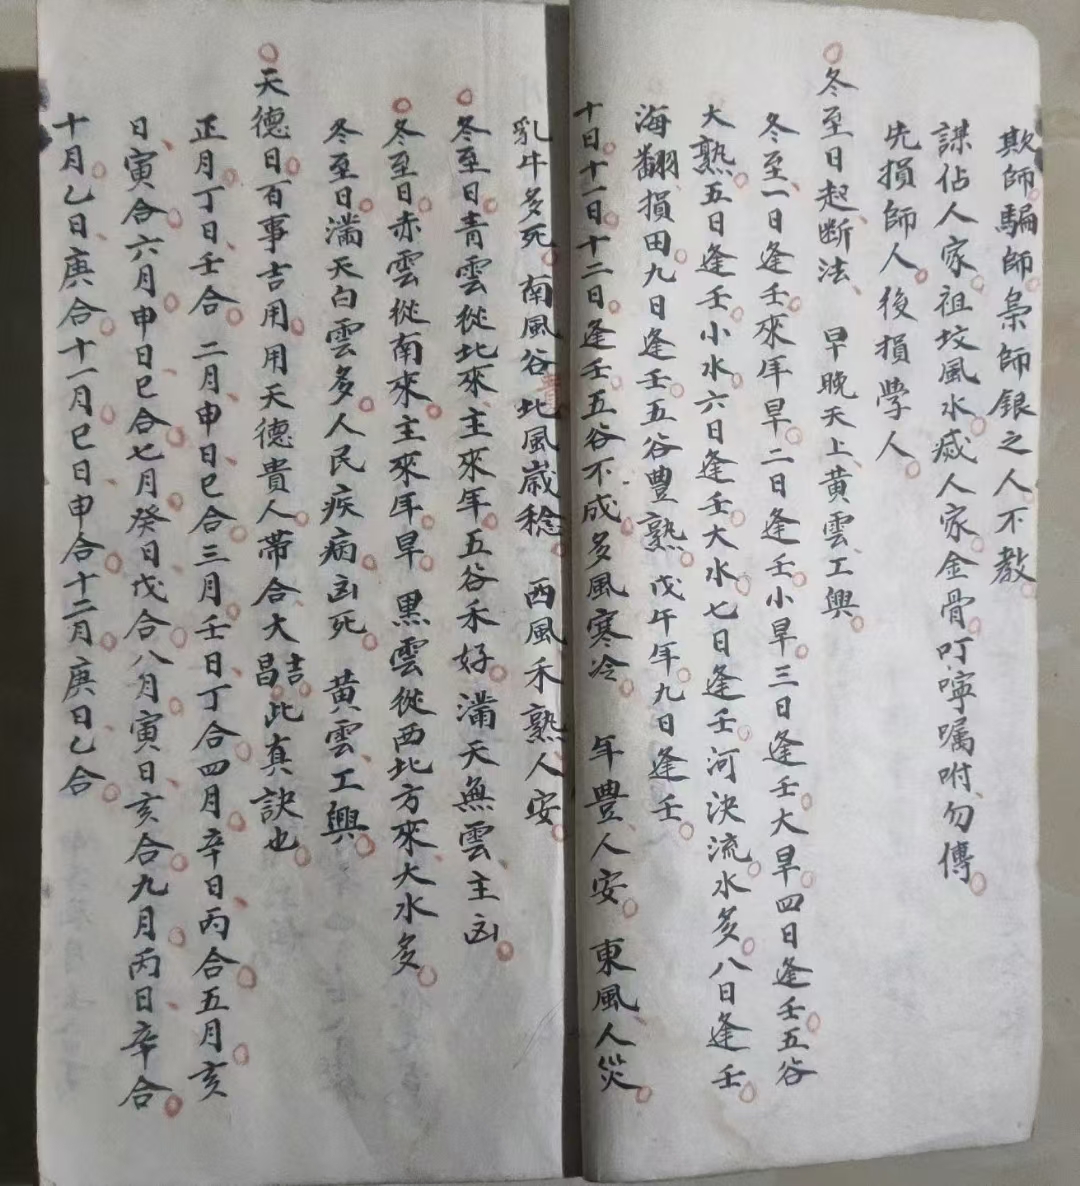 欺師騙師梟師銀之人不教
謀佔人家祖坟風水滅人家金骨叮嚀囑咐勿傳
先損師人後損學人
冬至日起断法 早晚天上黃雲工興
冬至一日逢壬來年旱二日逢壬小旱三日逢壬大旱四日逢壬五谷
大熟五日逢壬小水六日逢壬大水七日逢壬河決流水多八日逢壬
海翻損田九日逢壬五谷豐熟戊午年九日逢壬
十日十一日十二日逢壬五谷不成多風寒冷 年豊人安 東風人災
乳牛多死 南風谷 北風歲稔 西風禾熟人安
冬至日青雲從北來主來年五谷禾好滿天無雲主凶
冬至日赤雲從南來主來年旱 黑雲從西北方來大水多
冬至日滿天白雲多人民疾病凶死 黃雲工興
天德日百事吉用用天德貴人帶合大吉昌此真訣也
正月丁日壬合二月申日巳合三月壬日丁合四月辛日丙合五月亥
日寅合六月申日巳合七月癸日戊合八月寅日亥合九月丙日辛合
十月乙日庚合十一月巳日申合十二月庚日乙合